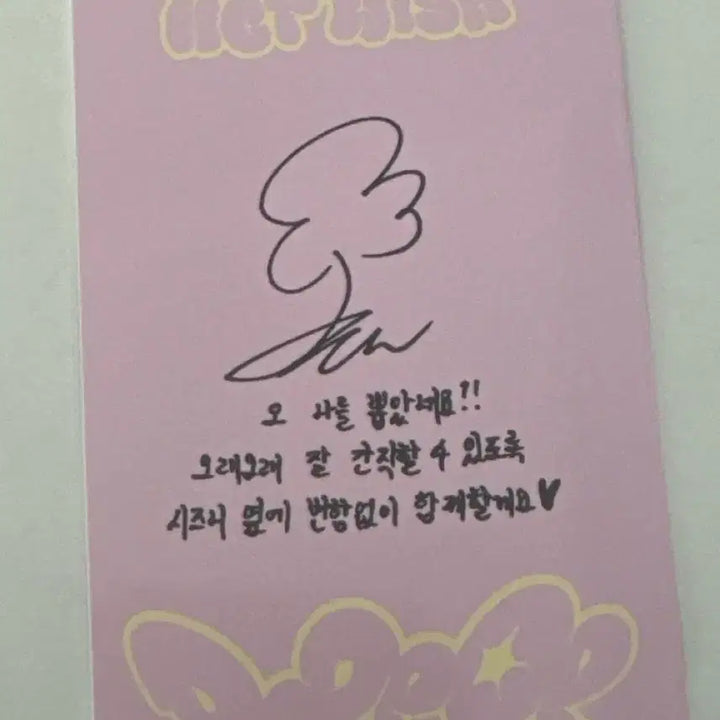 NCT WISH
오 나를 뽑았네요!!
오래오래 잘 간직할 수 있도록
시즈니 옆에 변함없이 함께할게요♥